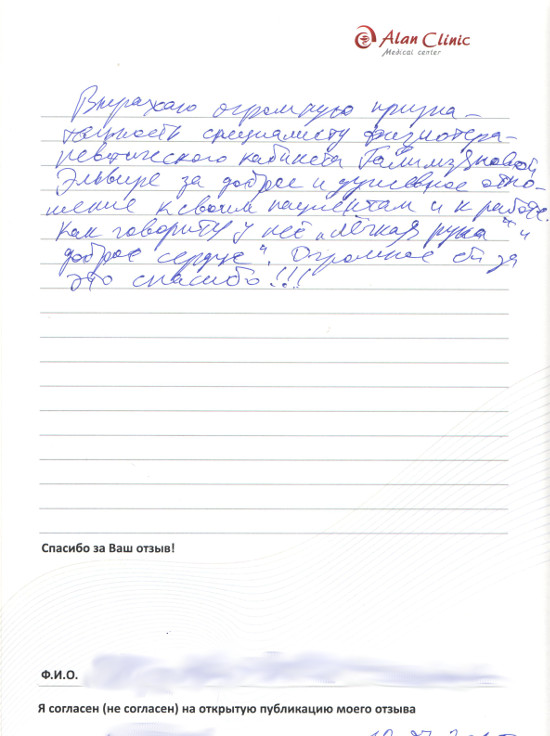 Alan Clinic
Medical center
Выражаю огромную призна-
тельность специалисту физиотера-
певтического кабинета Галимзяновой
Эльвире за доброе и душевное отно-
шение к своим пациентам и к работе.
Как говорит у неё „лёгкая рука" и
доброе сердце". Огромное ей за
это спасибо!!!
Спасибо за Ваш отзыв!
Ф.И.О.
Я согласен (не согласен) на открытую публикацию моего отзыва